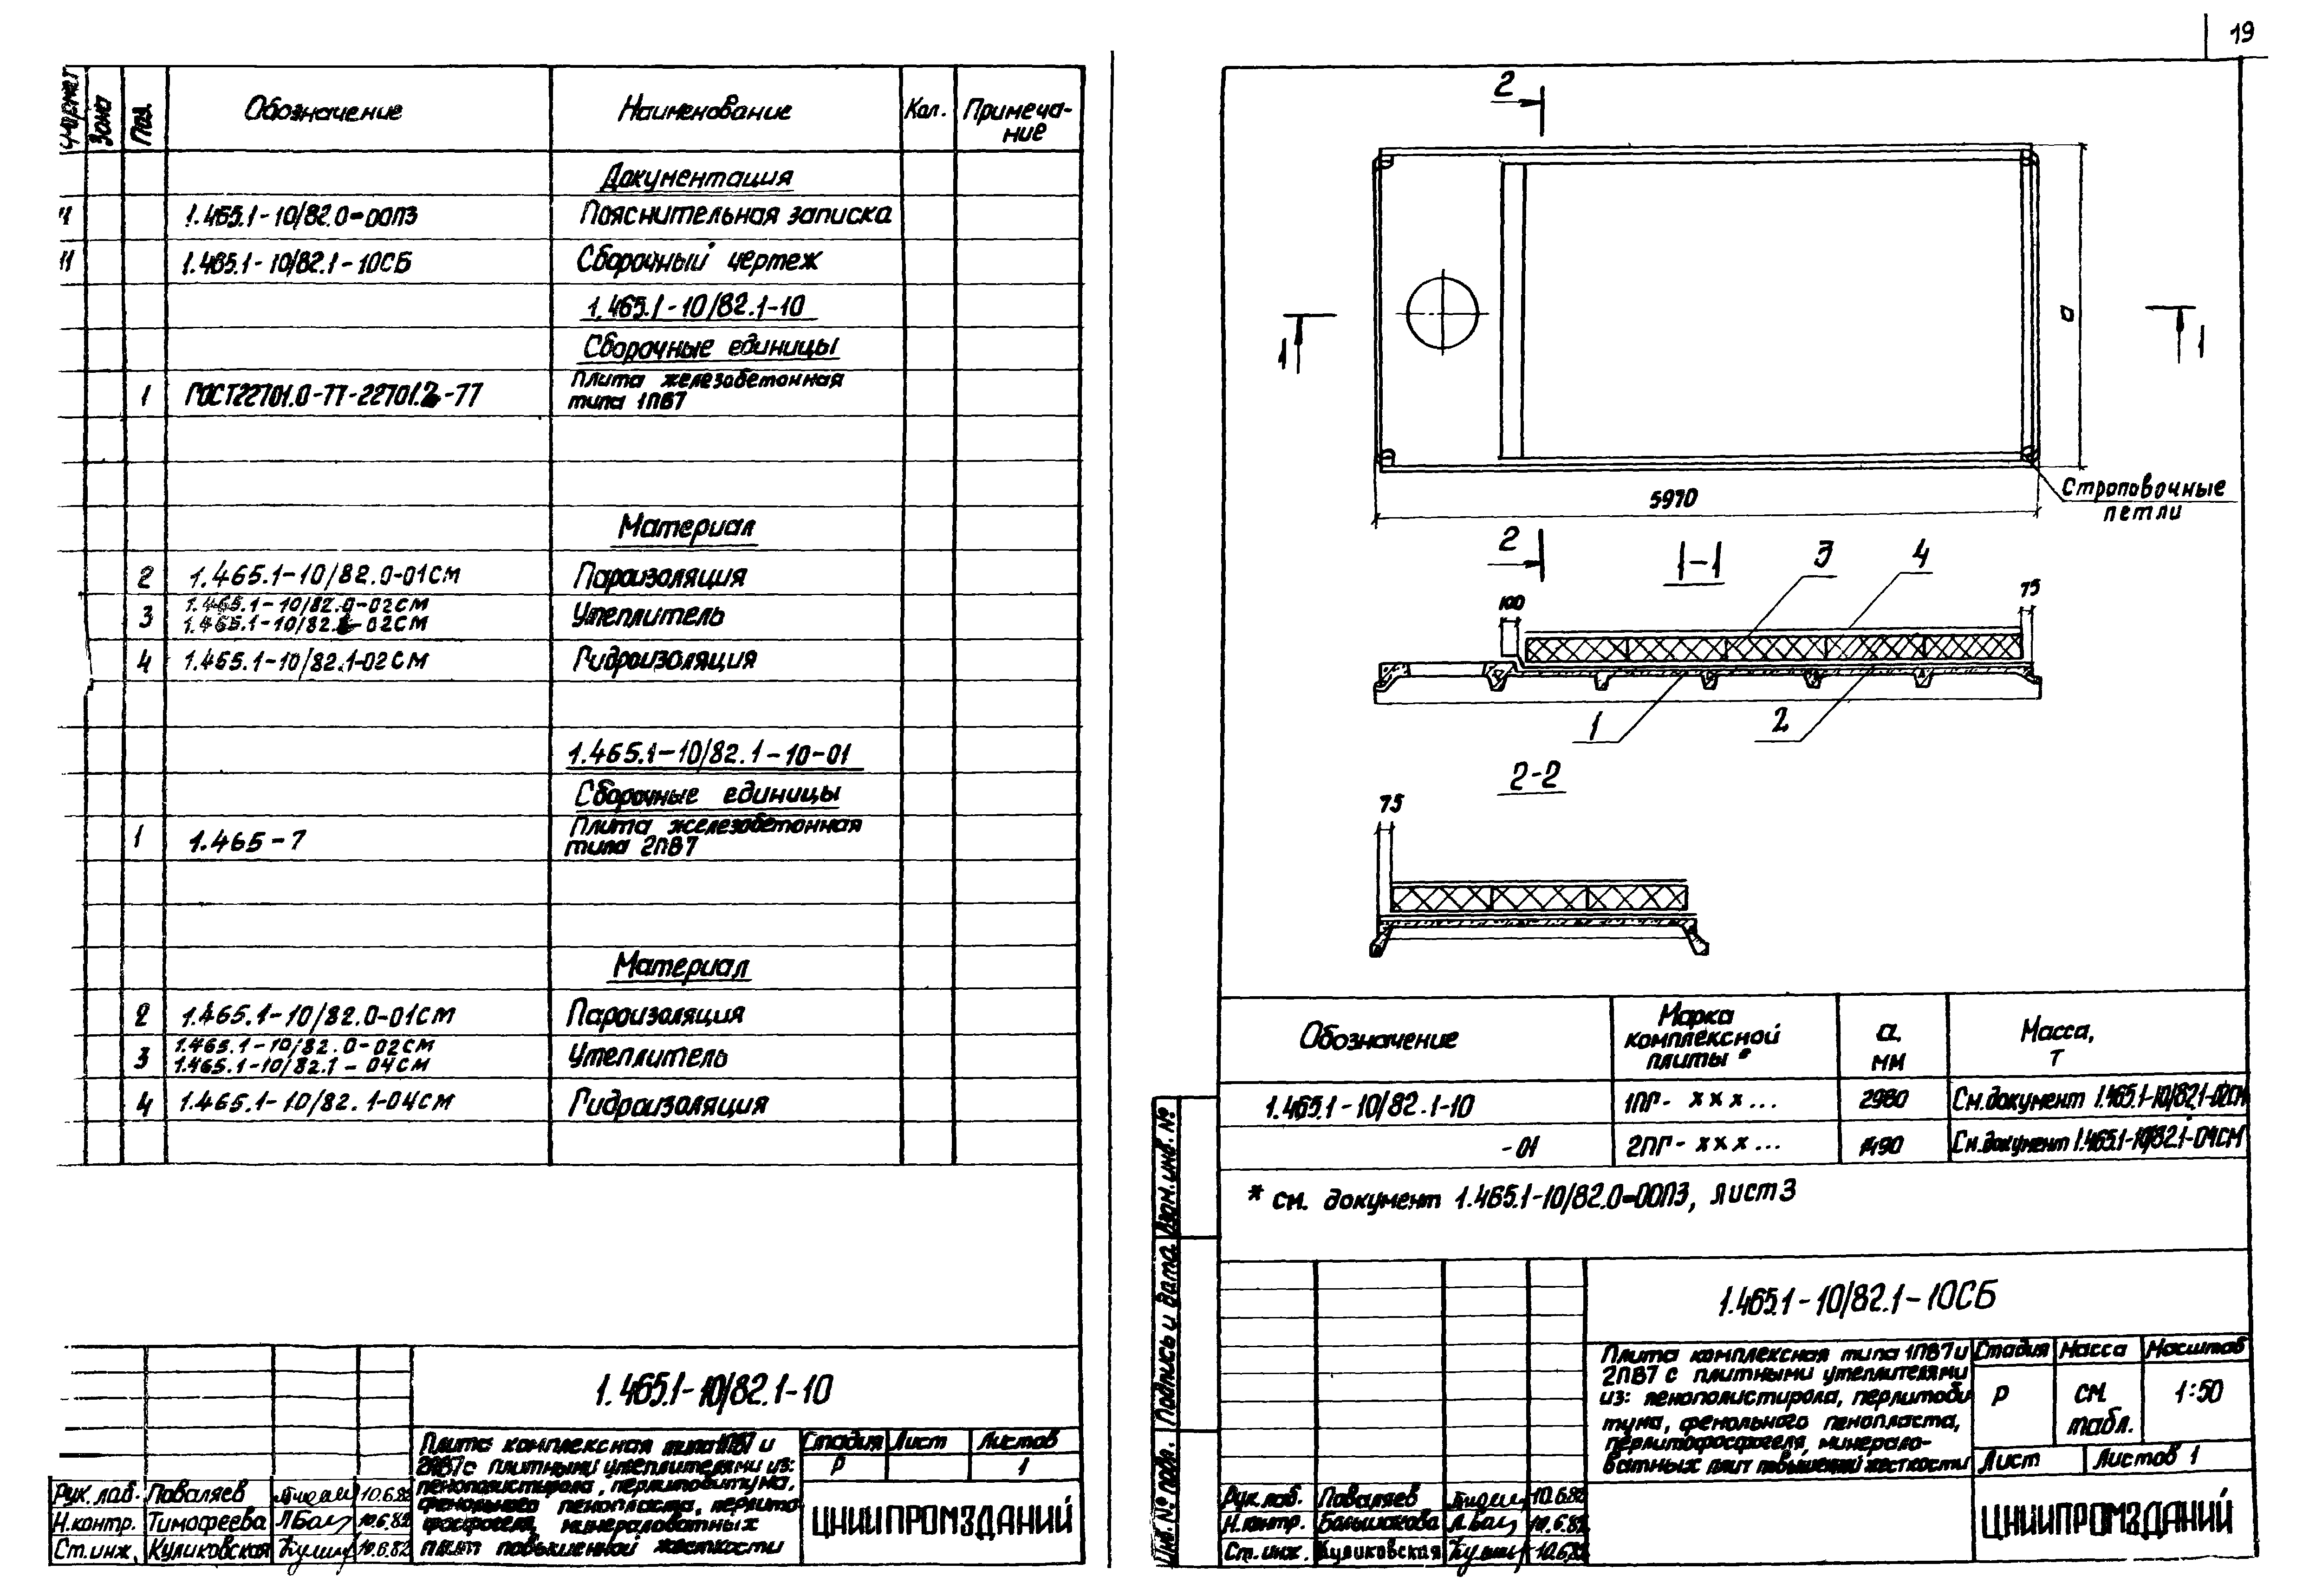 19
Формат
Зона
Поз.
Обозначение
Наименование
Кол.
Примеча-
ние
Документация
11
1.465.1-10/82.0-00ПЗ
Пояснительная записка
11
1.465.1-10/82.1-10СБ
Сборочный чертеж
1.465.1-10/82.1-10
Сборочные единицы
1
ГОСТ22701.0-77-22701.2-77
Плита железобетонная
типа 1ПВ7
Материал
2
1.465.1-10/82.0-01СМ
Пароизоляция
3
1.465.1-10/82.0-02СМ
1.465.1-10/82.1-02СМ
Утеплитель
4
1.465.1-10/82.1-02СМ
Гидроизоляция
1.465.1-10/82.1-10-01
Сборочные единицы
1
1.465-7
Плита железобетонная
типа 2ПВ7
Материал
2
1.465.1-10/82.0-01СМ
Пароизоляция
3
1.465.1-10/82.0-02СМ
1.465.1-10/82.1-04СМ
Утеплитель
4
1.465.1-10/82.1-04СМ
Гидроизоляция
1.465.1-10/82.1-10
Плита комплексная типа 1ПВ7 и
2ПВ7 с плитными утеплителями из:
пенополистирола, перлитобитума,
фенольного пенопласта, перлито-
фосфогеля, минераловатных
плит повышенной жесткости
Стадия
Лист
Листов
Р
1
ЦНИИПРОМЗДАНИЙ
Рук. лаб. Поваляев 10.6.82
Н.контр. Тимофеева 10.6.82
Ст.инж. Куликовская 10.6.82
2
1
1
а
5970
Строповочные
петли
2
1-1
3
4
100
75
1
2
2-2
75
Обозначение
Марка
комплексной
плиты *
а
мм
Масса,
т
1.465.1-10/82.1-10
1ПГ- ххх...
2980
См.документ 1.465.1-10/82.1-02СМ
-01
2ПГ- ххх...
1490
См.документ 1.465.1-10/82.1-04СМ
* см. документ 1.465.1-10/82.0-00ПЗ, лист 3
Взам.инв.№
Подпись и дата
Инв.№ подл.
1.465.1-10/82.1-10СБ
Плита комплексная типа 1ПВ7 и
2ПВ7 с плитными утеплителями
из: пенополистирола, перлитоби
тума, фенольного пенопласта,
перлитофосфогеля, минерало-
ватных плит повышенной жесткости
Стадия
Масса
Масштаб
Р
см.
табл.
1:50
Лист
Листов 1
ЦНИИПРОМЗДАНИЙ
Рук.лаб. Поваляев 10.6.82
Н.контр. Большакова 10.6.82
Ст.инж. Куликовская 10.6.82